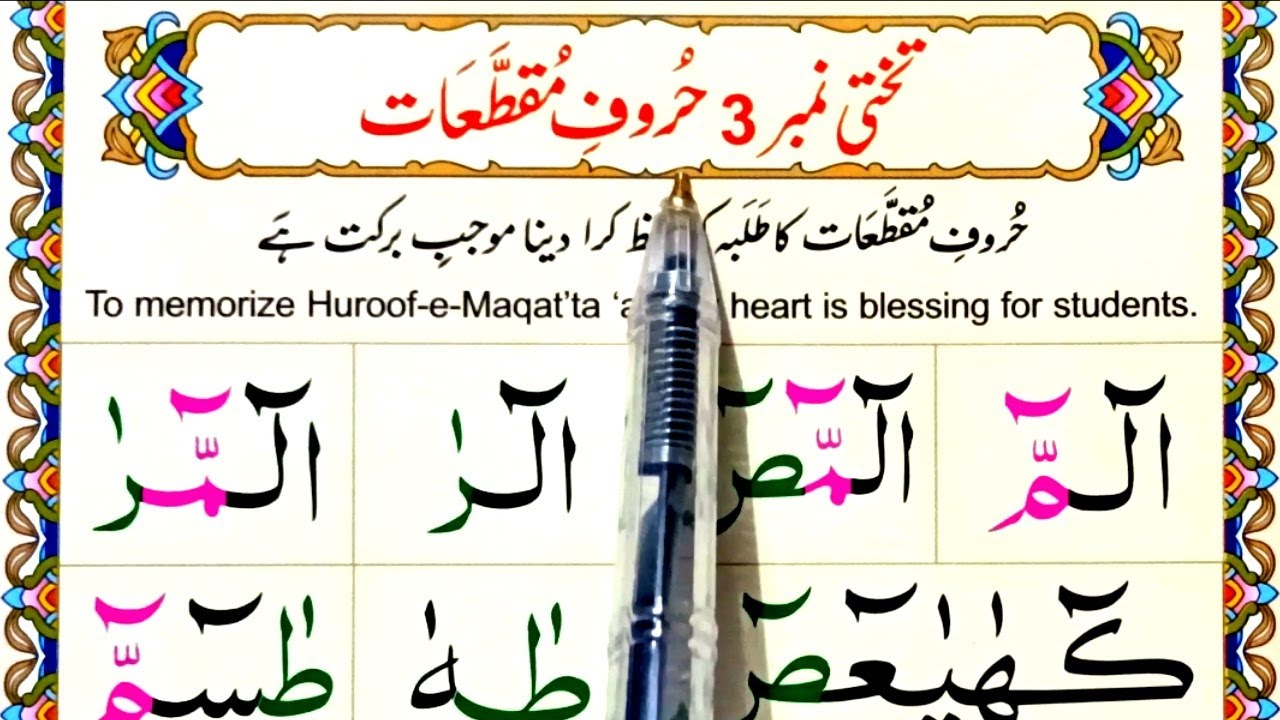 تختی نمبر 3 حُروفِ مُقطَّعَات
حُروفِ مُقطَّعَات کا طَلَبہ کرا دینا موجبِ برکت ہَے
To memorize Huroof-e-Maqat’ta heart is blessing for students.
الٓمّٓ الٓمّٓصٓ الٓرٰ الٓمّٓرٰ
کٓهٰیٰعٓصٓ طٰهٰ طٰسٓمّٓ